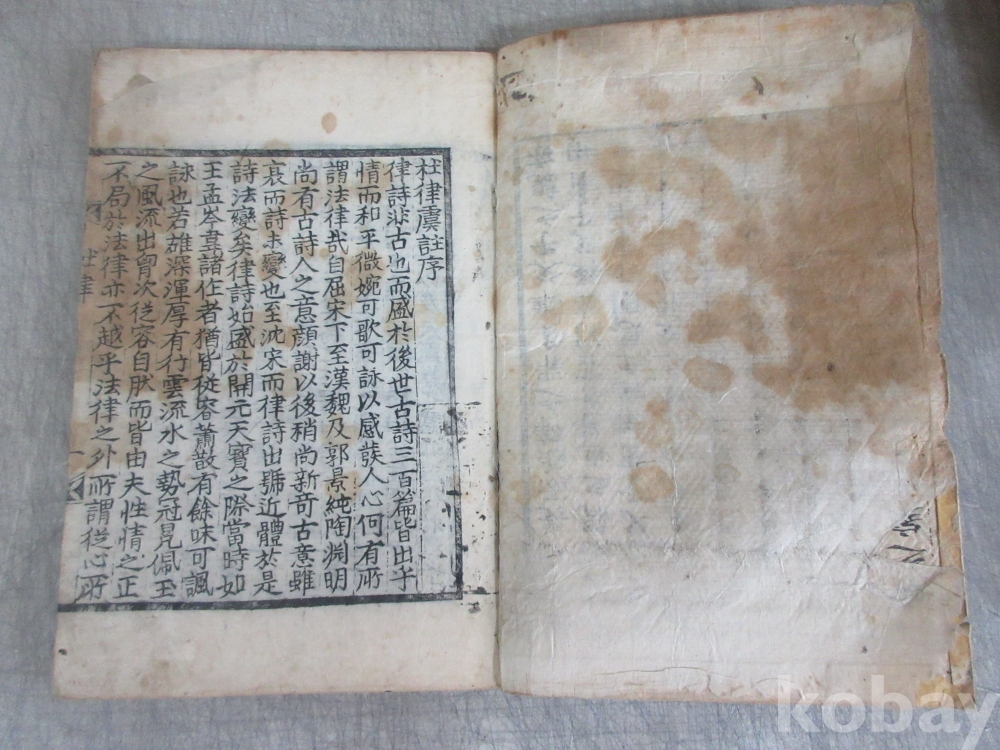 杜律虞註序
律詩非古也而盛於後世古詩三百篇皆出乎
情而和平微婉可歌可詠以感發人心何有所
謂法律哉自屈宋下至漢魏及郭景純陶淵明
尚有古詩人之意顔謝以後稍尚新奇古意雖
衰而詩未變也至沈宋而律詩出號近體於是
詩法變矣律詩始盛於開元天寶之際當時如
王孟岑韋諸作者猶皆從容蕭散有餘味可諷
詠也若雄深渾厚有行雲流水之勢冠冕佩玉
之風流出胷次從容自然而皆由夫性情之正
不局於法律亦不越乎法律之外所謂從心所
杜律
kobay